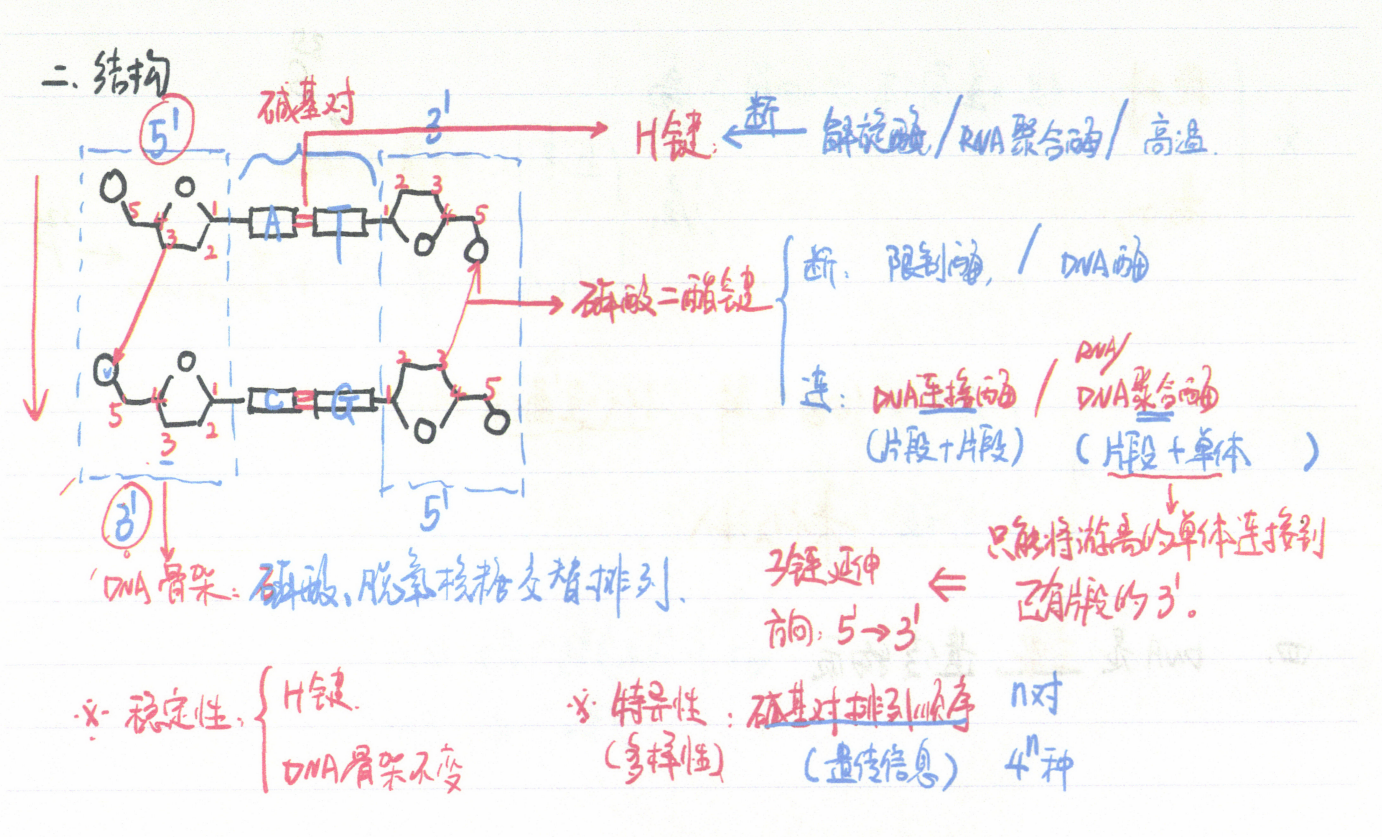 二、结构
碱基对
5' 3'
H键: 断 解旋酶/RNA聚合酶/高温.
5 4 3 2 1 A T 1 2 3 4 5
断: 限制酶, / DNA酶
磷酸二酯键
RNA/
连: DNA连接酶 / DNA聚合酶
(片段+片段) (片段+单体 )
5 4 3 2 1 C G 1 2 3 4 5
3' 5'
只能将游离的单体连接到
已有片段的3'。
子链延伸
方向: 5'→3'
DNA骨架: 磷酸、脱氧核糖交替排列.
※ 稳定性: H键.
DNA骨架不变
※ 特异性: 碱基对排列顺序 n对
(多样性) (遗传信息) 4ⁿ种
四、DNA是主要遗传物质